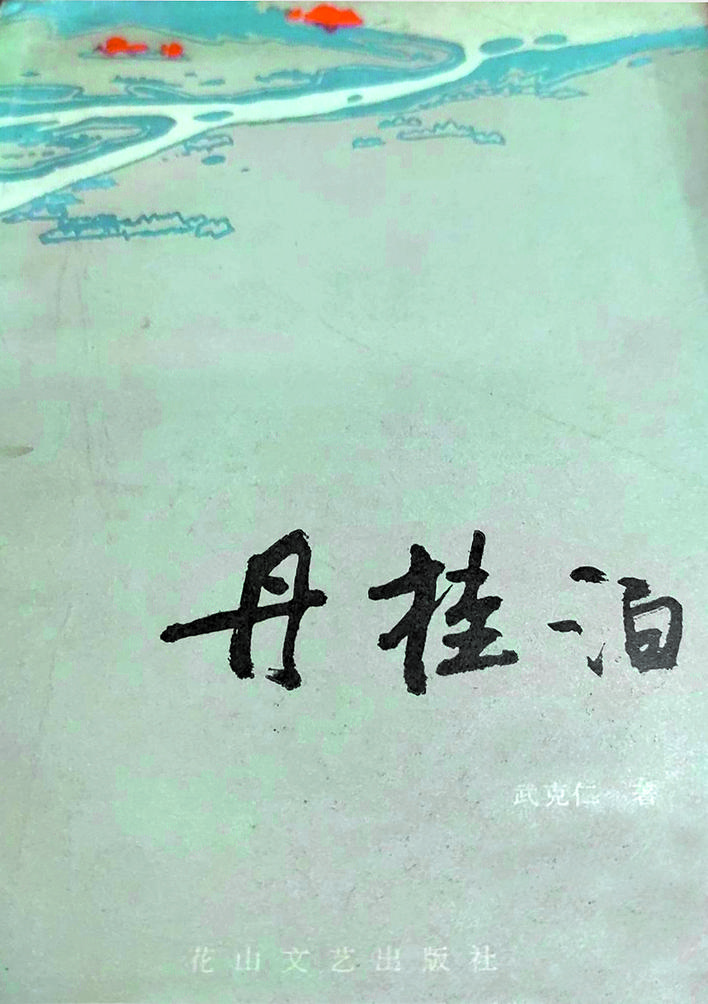 丹桂泊
武克仁 著
花山文艺出版社